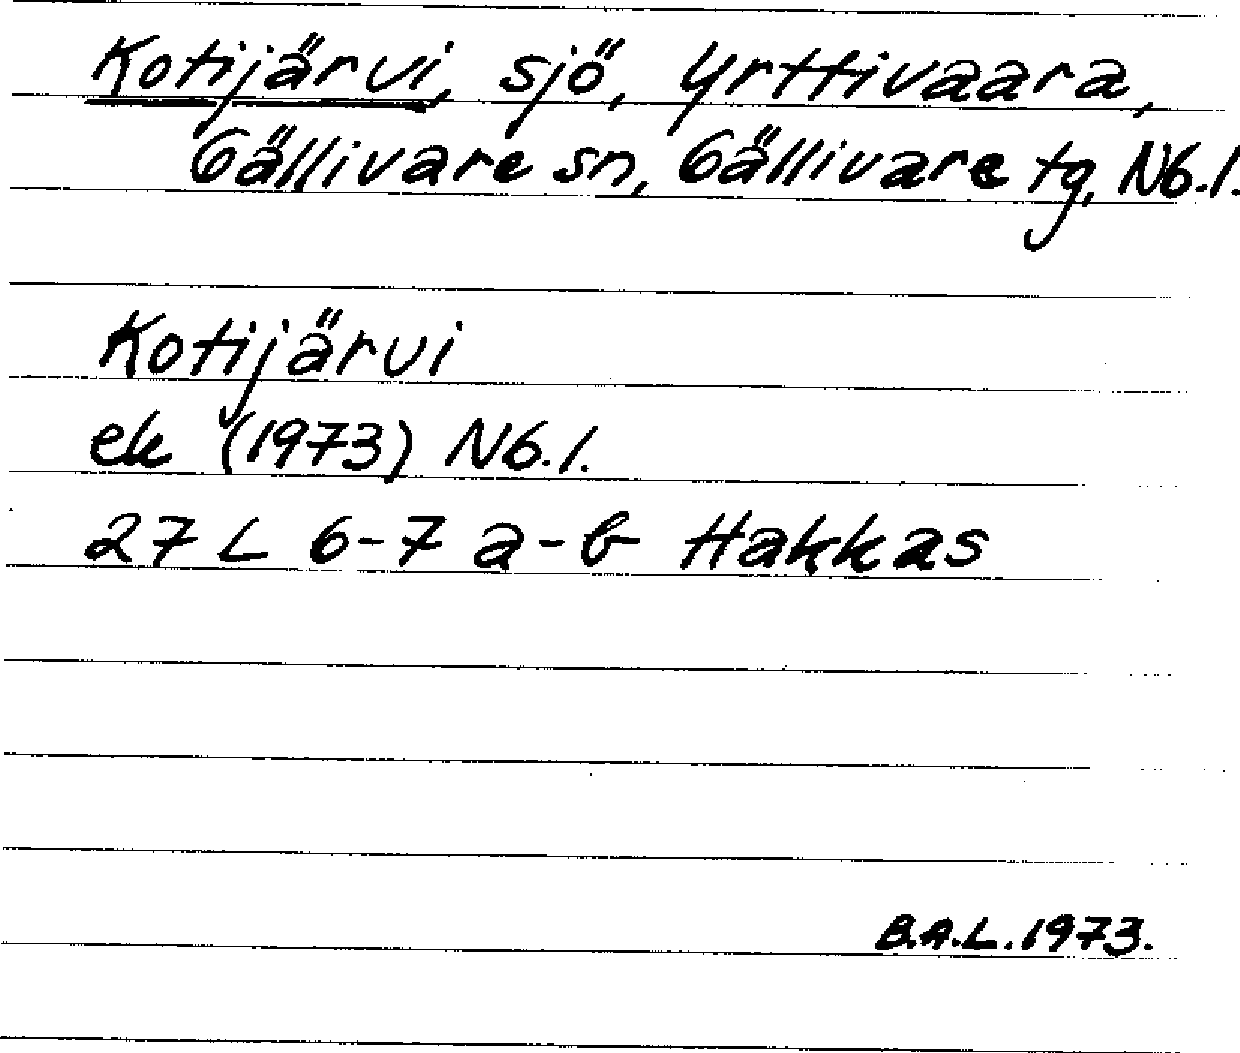 Kotijärvi, sjö, Yrttivaara,
Gällivare sn, Gällivare tg, Nb.l.
Kotijärvi
ek (1973) Nb.l.
27 L 6-7 a-b Hakkas
B.A.L. 1973.